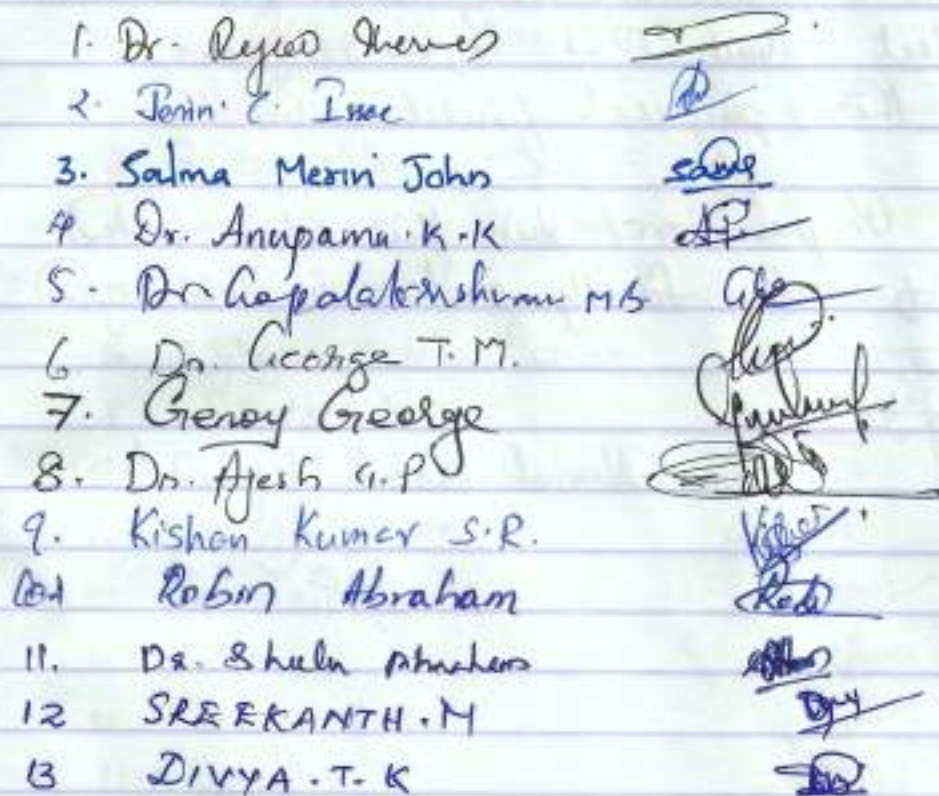 1. Dr.
2. Jerin. C. Issac
3. Salma Merin John
4. Dr. Anupama. K. K
5. Dr. Gopalakrishnan M S
6 Dr. George T. M.
7. Genoy George
8. Dr. Ajesh G. P
9. Kishan Kumar S. R.
Robin Abraham
11. Dr. Sheela Abraham
12 SREEKANTH. M
13 DIVYA. T. K